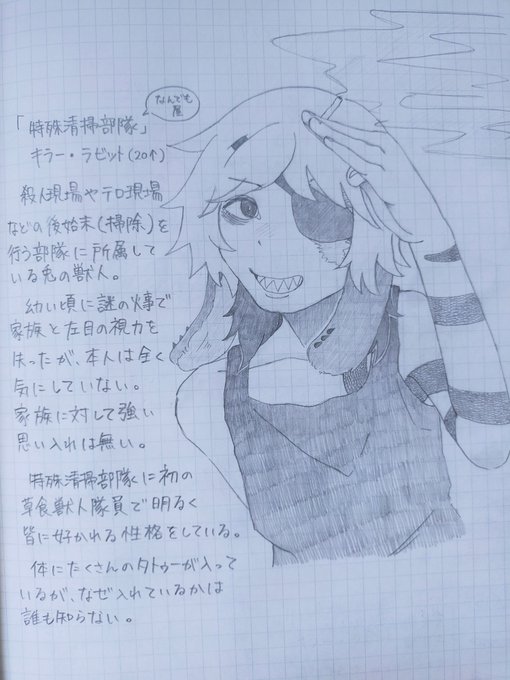 なんでも
屋
「特殊清掃部隊」
キラー・ラビット(20↑)
殺人現場やテロ現場
などの後始末(掃除)を
行う部隊に所属して
いる兎の獣人。
幼い頃に謎の火事で
家族と左目の視力を
失ったが、本人は全く
気にしていない。
家族に対して強い
思い入れは無い。
特殊清掃部隊に初の
草食獣人隊員で明るく
皆に好かれる性格をしている。
体にたくさんのタトゥーが入って
いるが、なぜ入れているかは
誰も知らない。